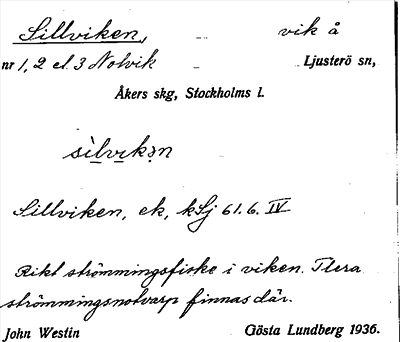 Sillviken, vik å
nr 1, 2 el. 3 Notvik Ljusterö sn,
Åkers skg, Stockholms l.
sìlvikən
Sillviken, ek, kSj 61.6. IV
Rikt strömmingsfiske i viken. Flera
strömmingsnotvarp finnas där.
John Westin Gösta Lundberg 1936.